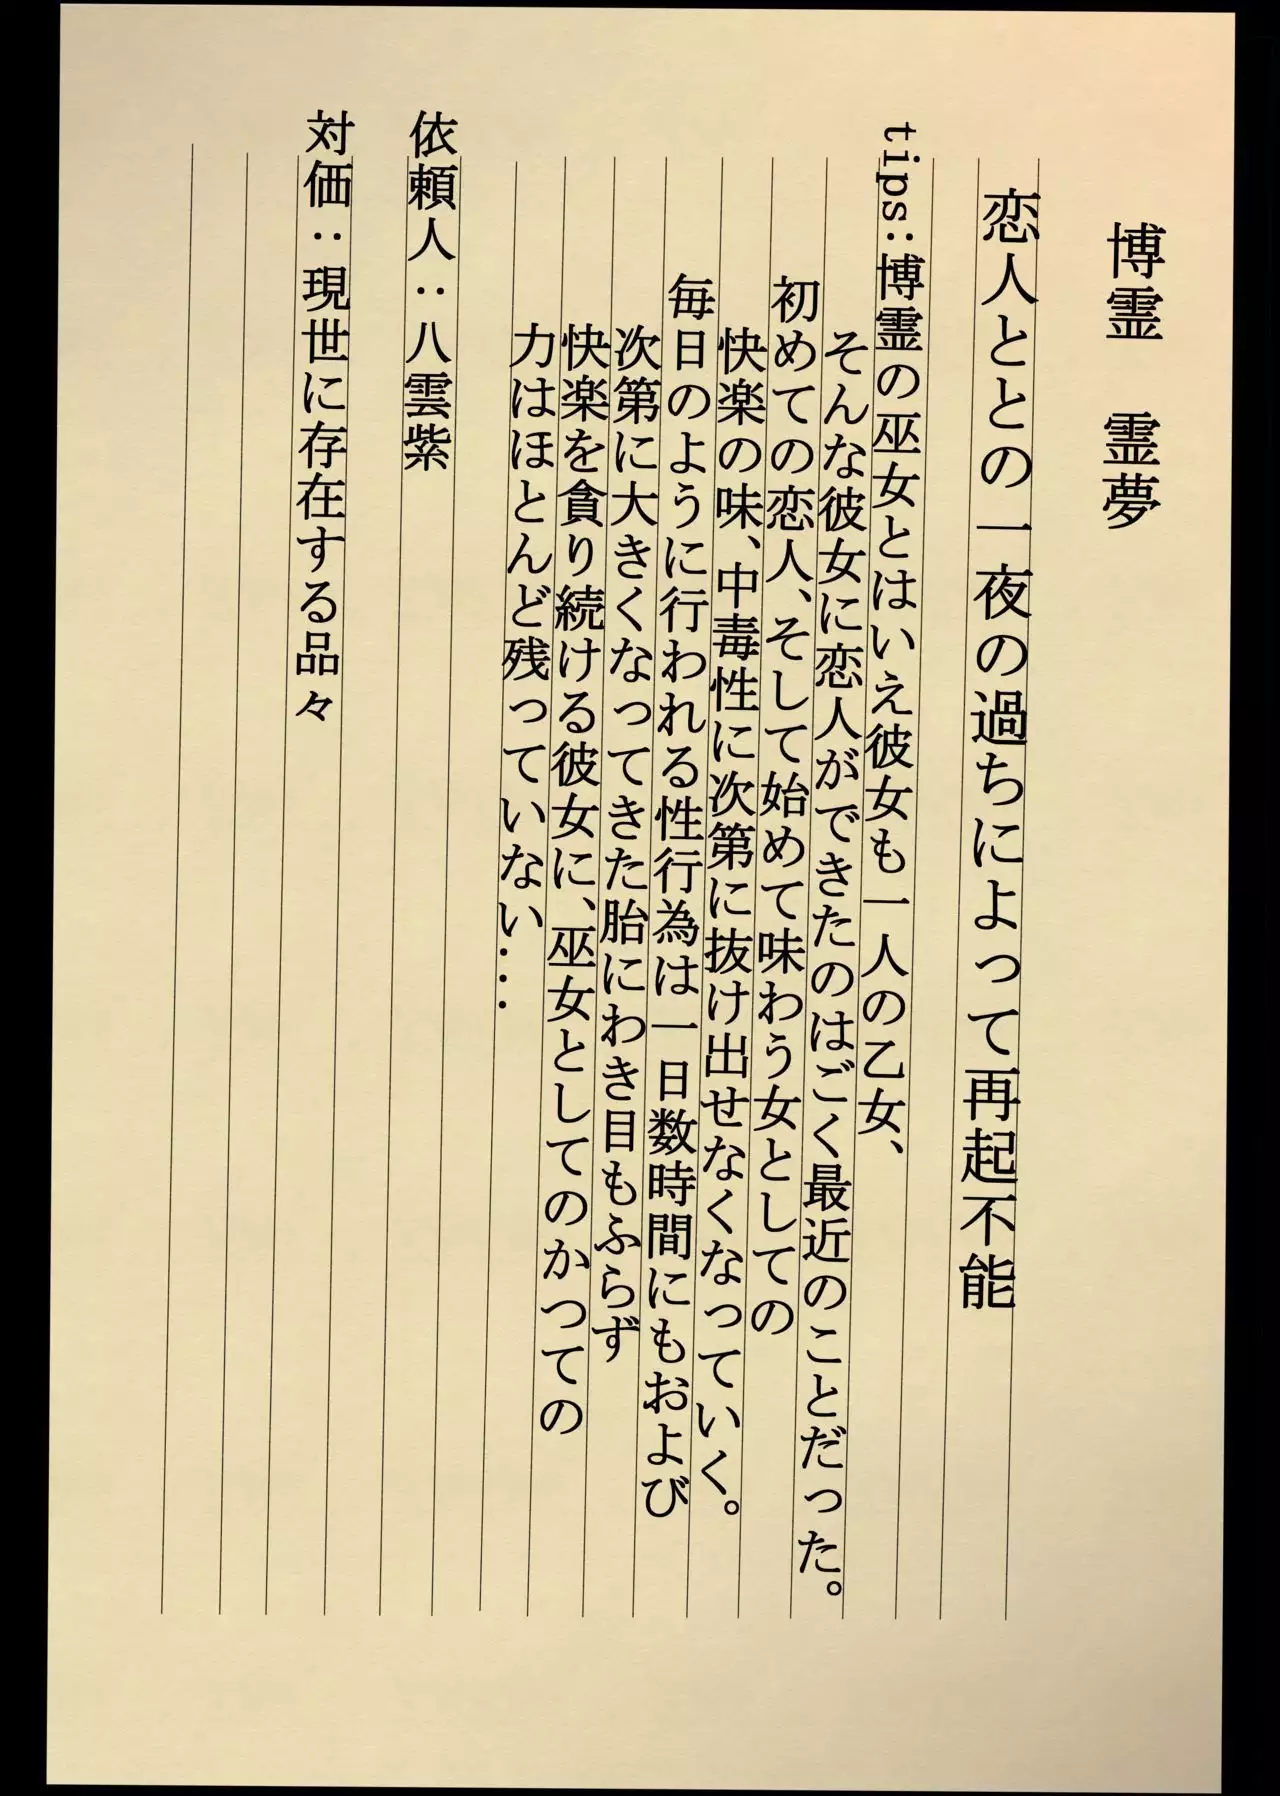 博霊　霊夢
恋人ととの一夜の過ちによって再起不能
tips:博霊の巫女とはいえ彼女も一人の乙女、
そんな彼女に恋人ができたのはごく最近のことだった。
初めての恋人、そして始めて味わう女としての
快楽の味、中毒性に次第に抜け出せなくなっていく。
毎日のように行われる性行為は一日数時間にもおよび
次第に大きくなってきた胎にわき目もふらず
快楽を貪り続ける彼女に、巫女としてのかつての
力はほとんど残っていない...
依頼人：八雲紫
対価：現世に存在する品々